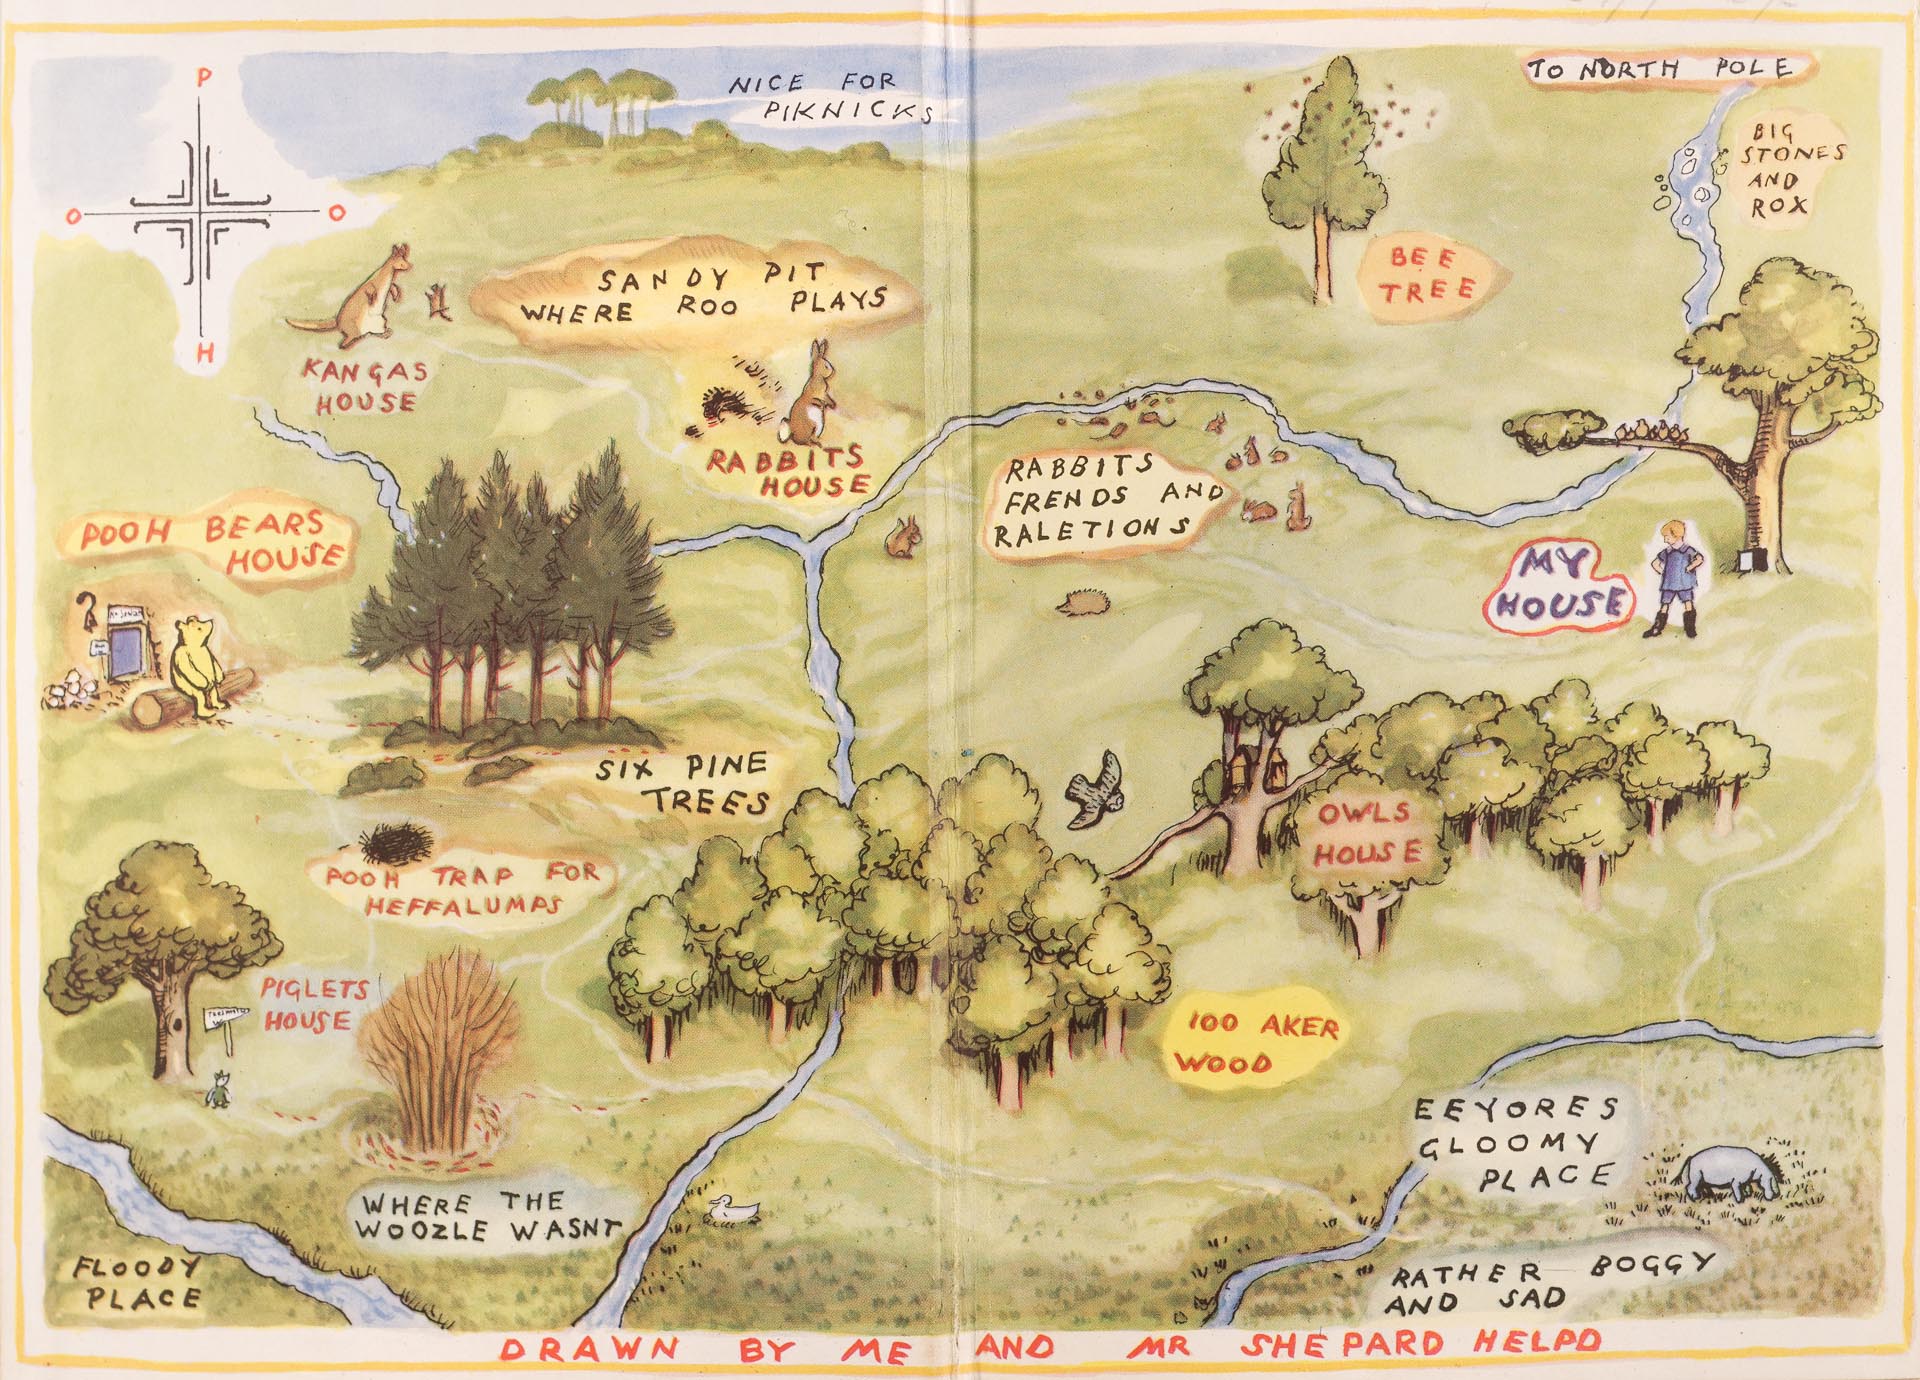 P
O
O
H
NICE FOR
PIKNICKS
TO NORTH POLE
BIG
STONES
AND
ROX
BEE
TREE
SANDY PIT
WHERE ROO PLAYS
KANGAS
HOUSE
RABBITS
HOUSE
RABBITS
FRENDS AND
RALETIONS
POOH BEARS
HOUSE
MY
HOUSE
SIX PINE
TREES
OWLS
HOUSE
POOH TRAP FOR
HEFFALUMPS
PIGLETS
HOUSE
100 AKER
WOOD
EEYORES
GLOOMY
PLACE
WHERE THE
WOOZLE WASNT
FLOODY
PLACE
RATHER BOGGY
AND SAD
DRAWN BY ME AND MR SHEPARD HELPD